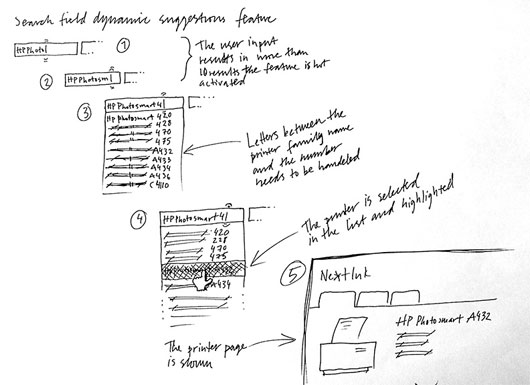 Search field dynamic suggestions feature
HPPhoto|
1
The user input
results in more than
10 results the feature is not
activated
2
HPPhotosm|
3
HPPhotosmart4|
HP Photosmart 420
428
470
475
A432
A433
A434
A436
C4110
Letters between the
printer family name
and the number
needs to be handeled
4
HPPhotosmart4|
420
228
470
475
A434
The printer is selected
in the list and highlighted
5
Next Ink
HP Photosmart A432
The printer page
is shown